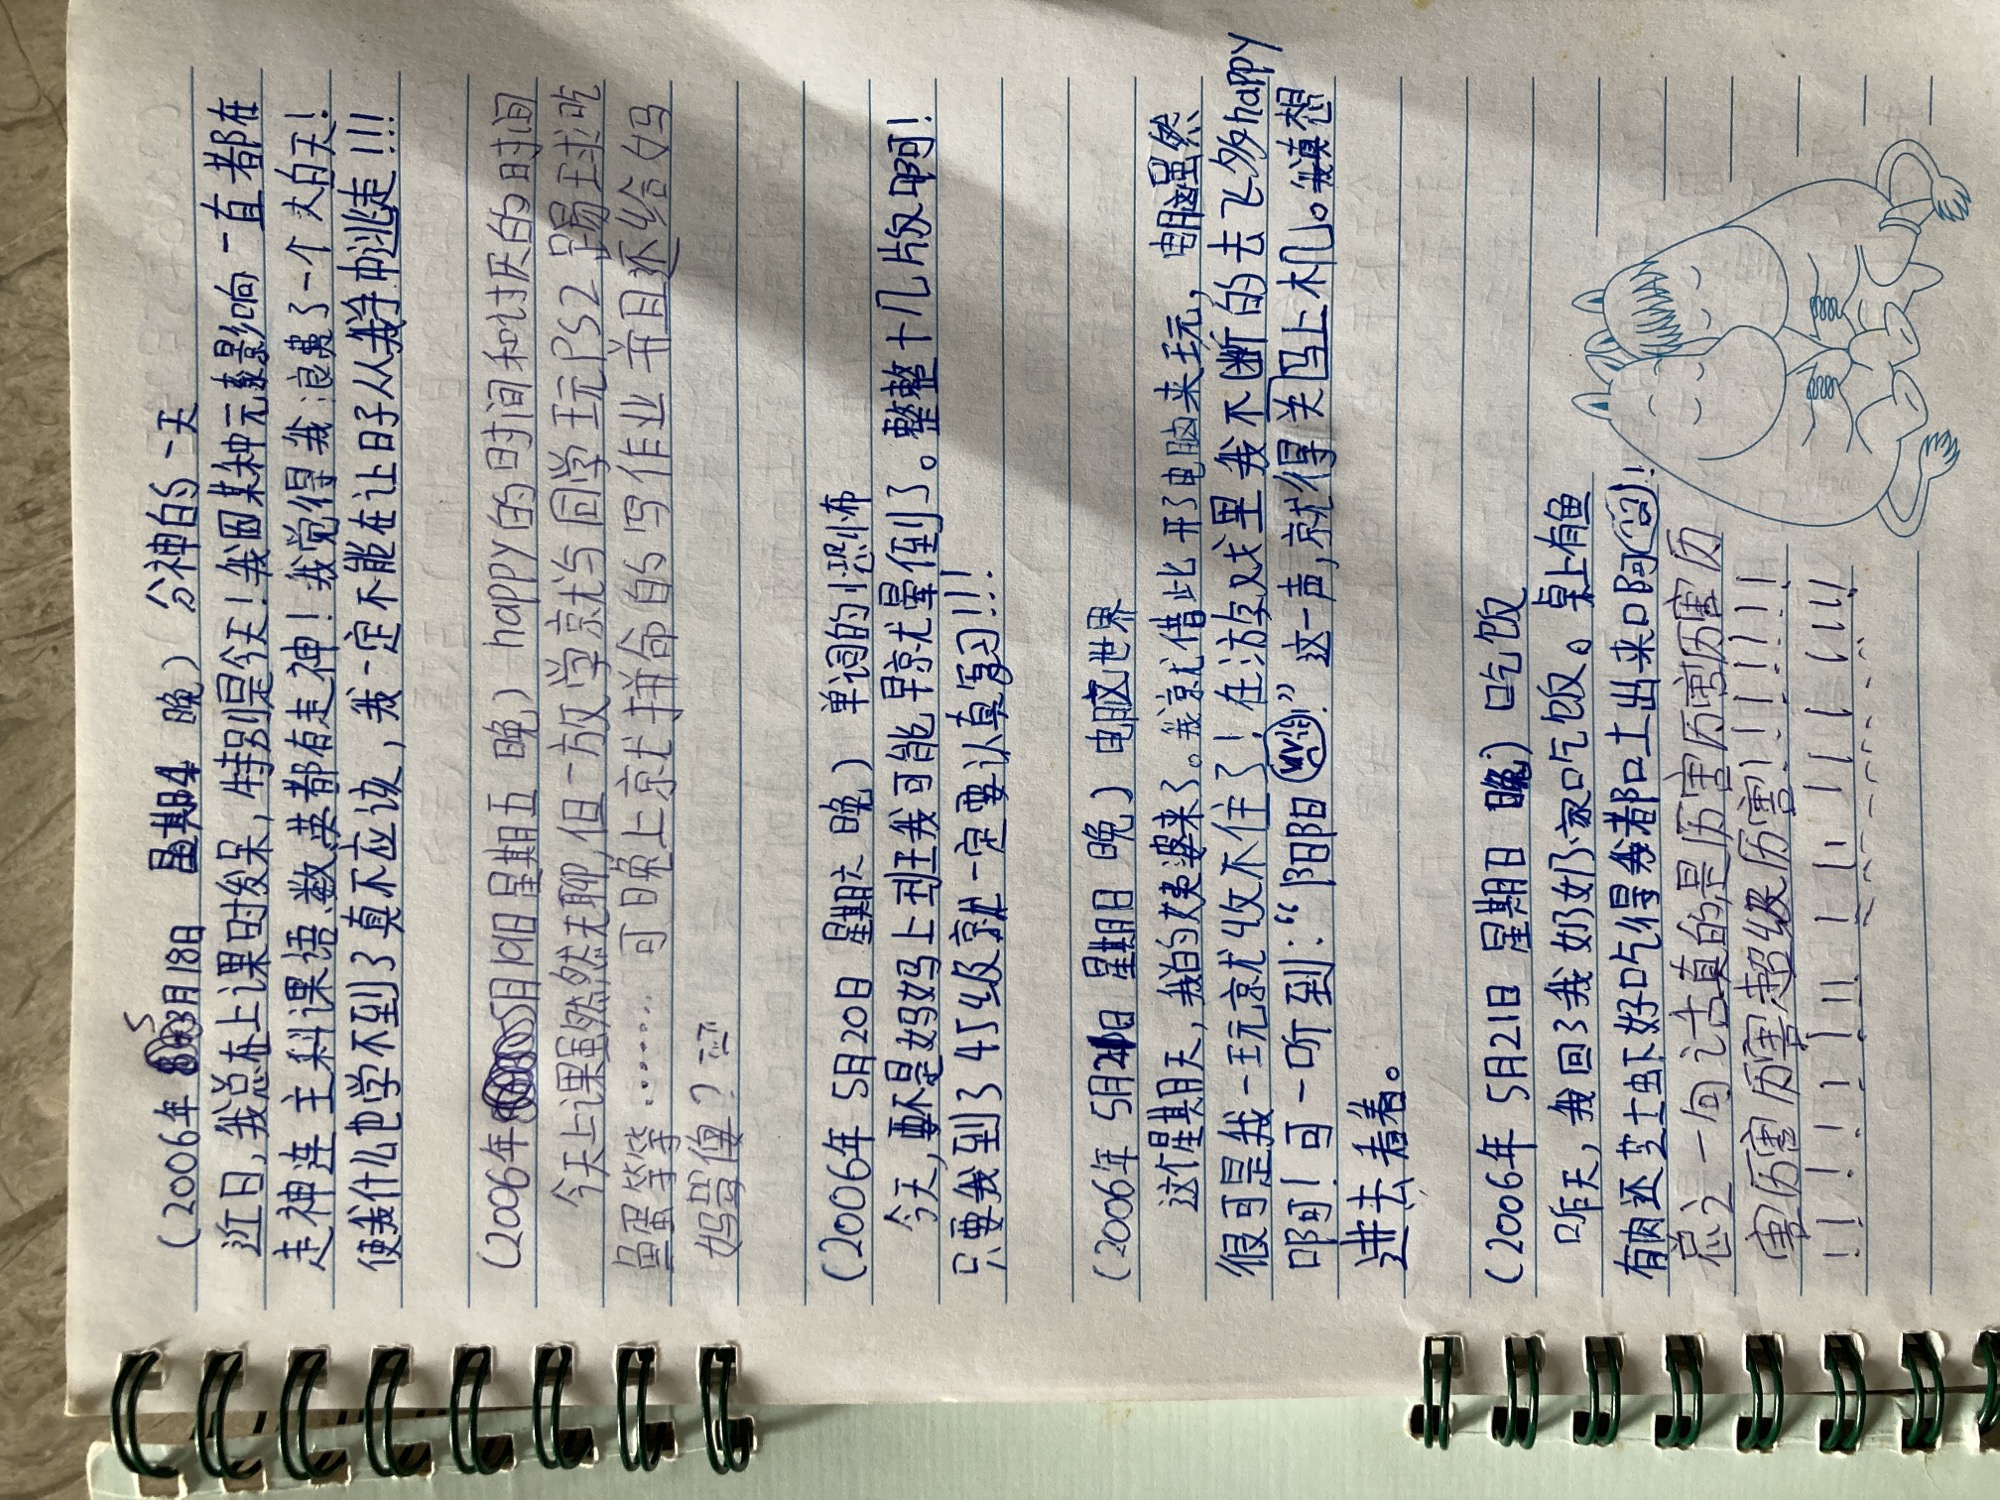 (2006年 5月18日 星期4 晚) 分神白S一天
近日,我总在上课时发呆,特别是今天!我因某种元素影响一直都在
走神连 主科课语.数.英都有走神!我觉得我浪费了一个大白天!
使我什么也学不到了真不应该,我一定不能在让日子从我手中逃走!!!
(2006年5月19日星期五 晚) happy的时间和讨厌的时间
今天上课虽然无聊,但一放学就与同学玩PS2 踢球吃
蛋等等……… 可晚上就拼命白S写作业并且还给妈
妈骂傻?
(2006年 5月20日 星期六 晚) 单词的恐怖
今天,要不是妈妈上到我可能早就晕倒了。整整十几版啊!
只要我到了45级就一定要认真复习!!!
(2006年 5月21日 星期日 晚) 电脑世界
这个星期天,我的姨婆来了。我就借此开了电脑来玩,电脑虽然
很可是我一玩就收不住了!在游戏里我不断的去飞多happy
啊!可一听到:“阳阳 。”这一声,就得关马上机。我真想
进去看看。
(2006年 5月21日 星期日 晚) 吃饭
昨天,我回了我奶奶家吃饭。桌上有鱼
有肉还芝士虾好吃得我都吐出来啊!!
总之一句话真的是历害历害历害历
害历害历害超级历害!!!!!!!!
!!!!!!!!!!!!!!!